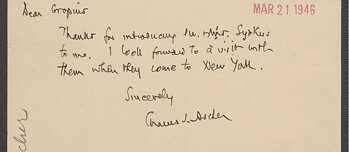 Dear Gropius
MAR 21 1946
Thanks for introducing Mr. Mrs. Syrkus
to me. I look forward to a visit with
them when they come to New York.
Sincerely
Charles
cher